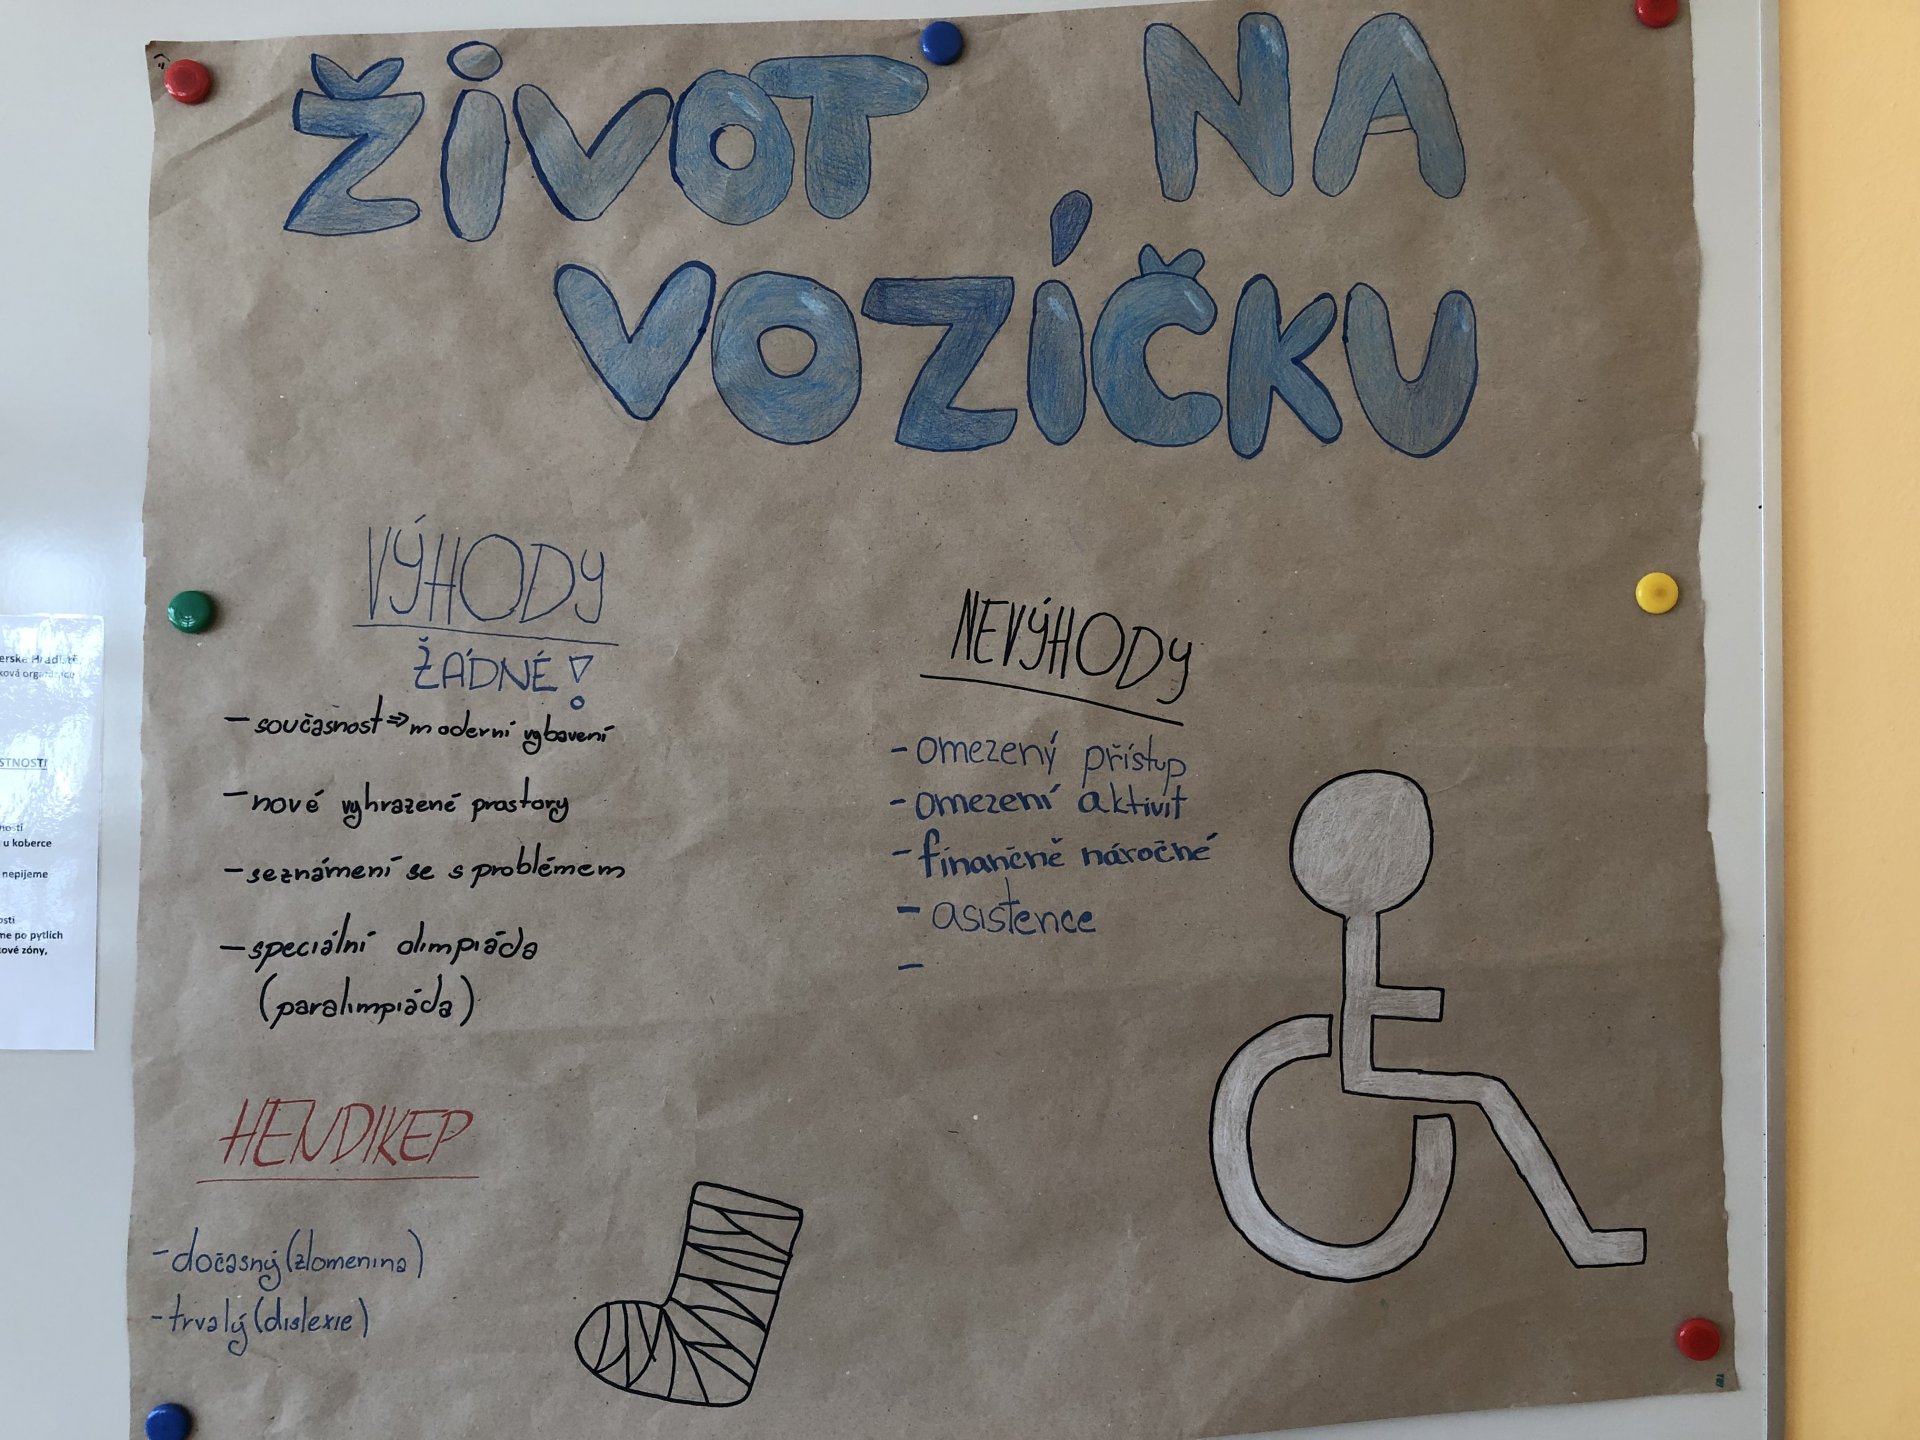 ŽIVOT NA
VOZÍČKU
VÝHODY
ŽÁDNÉ!
- současnost ⇒ moderní vybavení
- nové vyhrazené prostory
- seznámení se s problémem
- speciální olimpiáda
(paralimpiáda)
NEVÝHODY
- omezený přístup
- omezení aktivit
- finančně náročné
- asistence
-
HENDIKEP
- dočasný (zlomenina)
- trvalý (dislexie)
erské Hradiště,
ková organizace
STNOSTI
nosti
u koberce
nepijeme
osti
me po pytlích
ové zóny,